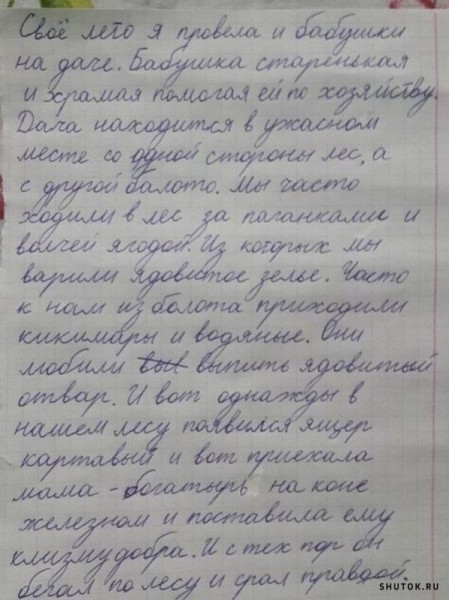 Своё лето я провела и бабушки
на даче. Бабушка старенькая
и храмая помогая ей по хозяйству.
Дача находится в ужасном
месте со одной стороны лес, а
с другой балото. Мы часто
ходили в лес за паганками и
волчей ягодой. Из которых мы
варили ядовитое зелье. Часто
к нам из болота приходили
кикимары и водяные. Они
любили выпить ядовитый
отвар. И вот однажды в
нашем лесу появился ящер
картавый и вот приехала
мама - богатырь на коне
железном и поставила ему
клизму добра. И с тех пор он
бегал по лесу и срал правдой.
SHUTOK.RU